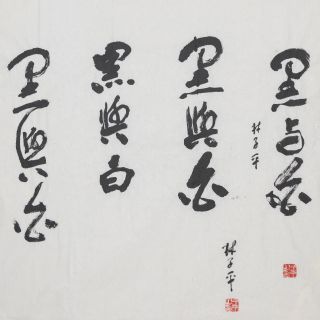 黑与白
林子平
黑與白
林子平
黑與白
黑與白